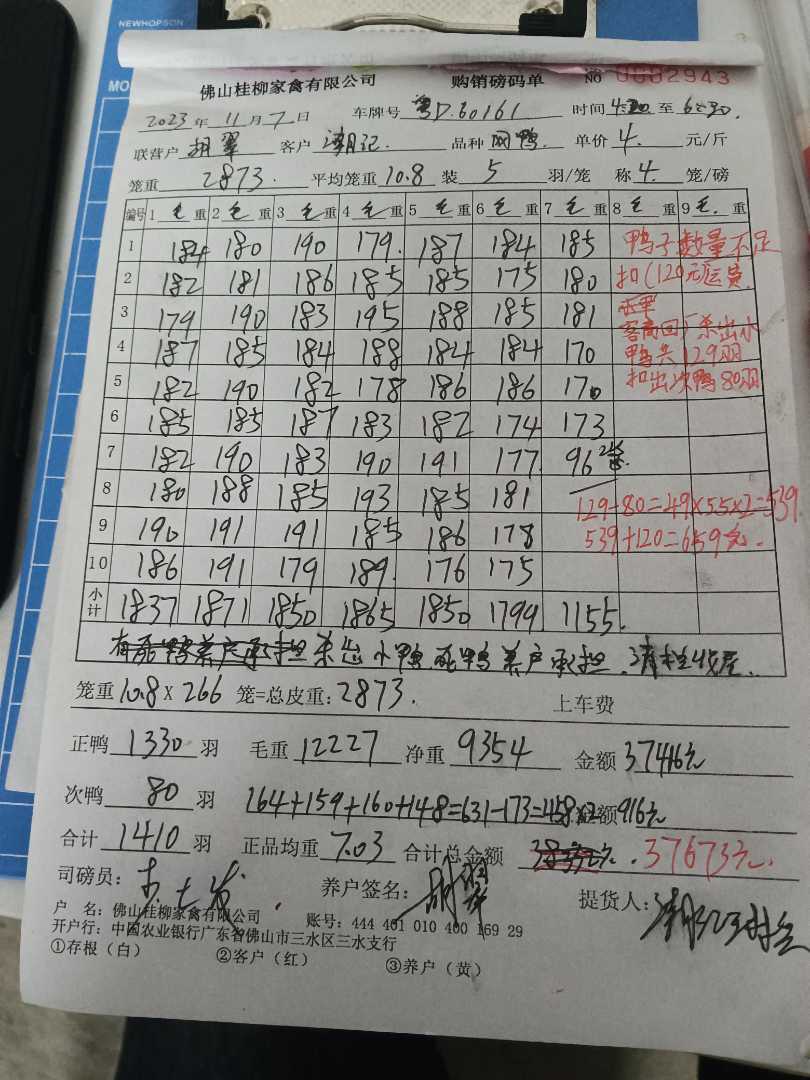 NEWHOPSON
MO
佛山桂柳家禽有限公司 购销磅码单 № 0002943
2023年 11月 7日 车牌号 粤D.60161 时间 4:30 至 6:30.
联营户 胡翠 客户 潮记. 品种 网鸭. 单价 4. 元/斤
笼重 2873. 平均笼重 10.8 装 5 羽/笼 称 4. 笼/磅
编号 1 毛 重 2 毛 重 3 毛 重 4 毛 重 5 毛 重 6 毛 重 7 毛 重 8 毛 重 9 毛. 重
1 184 180 190 179. 187 184 185 鸭子数量不足
2 182 181 186 185 185 175 180 扣(120元)运费.
3 179 190 183 195 188 185 181
客商回厂杀出小
4 187 185 184 188 184 184 170 鸭共129羽
5 182 190 182 178 186 186 170 扣出次鸭80羽
6 185 185 187 183 182 174 173
7 182 190 183 190 191 177 96 2笼.
8 180 188 185 193 185 181
129-80=49×5.5×2=539
9 190 191 191 185 186 178
539+120=659元.
10 186 191 179 189. 176 175
小计 1837 1871 1850 1865 1850 1799 1155.
杀出小鸭死鸭养户承担.
笼重 10.8 × 266 笼=总皮重: 2873. 上车费
正鸭 1330 羽 毛重 12227 净重 9354 金额 37416元
次鸭 80 羽 164+159+160+148=631-173=458×2 金额 916元
合计 1410 羽 正品均重 7.03 合计总金额 37673元.
司磅员: 养户签名: 提货人:
户 名: 佛山桂柳家禽有限公司 账号: 444 461 010 400 169 29
开户行: 中国农业银行广东省佛山市三水区三水支行
①存根(白) ②客户(红) ③养户(黄)